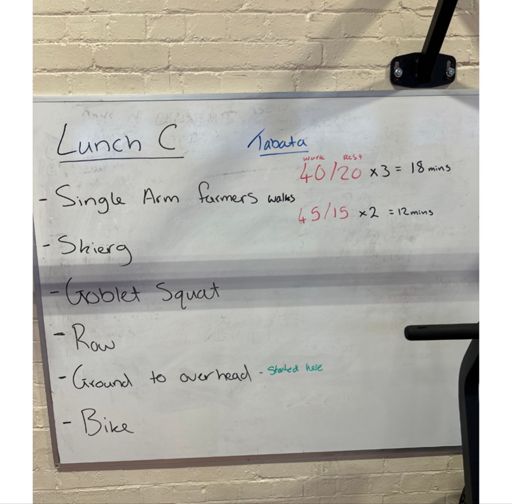 Lunch C
Tabata
work rest
40/20 x3 = 18 mins
- Single Arm farmers walks
45/15 x2 = 12mins
- Skierg
- Goblet Squat
- Row
- Ground to overhead - Started here
- Bike